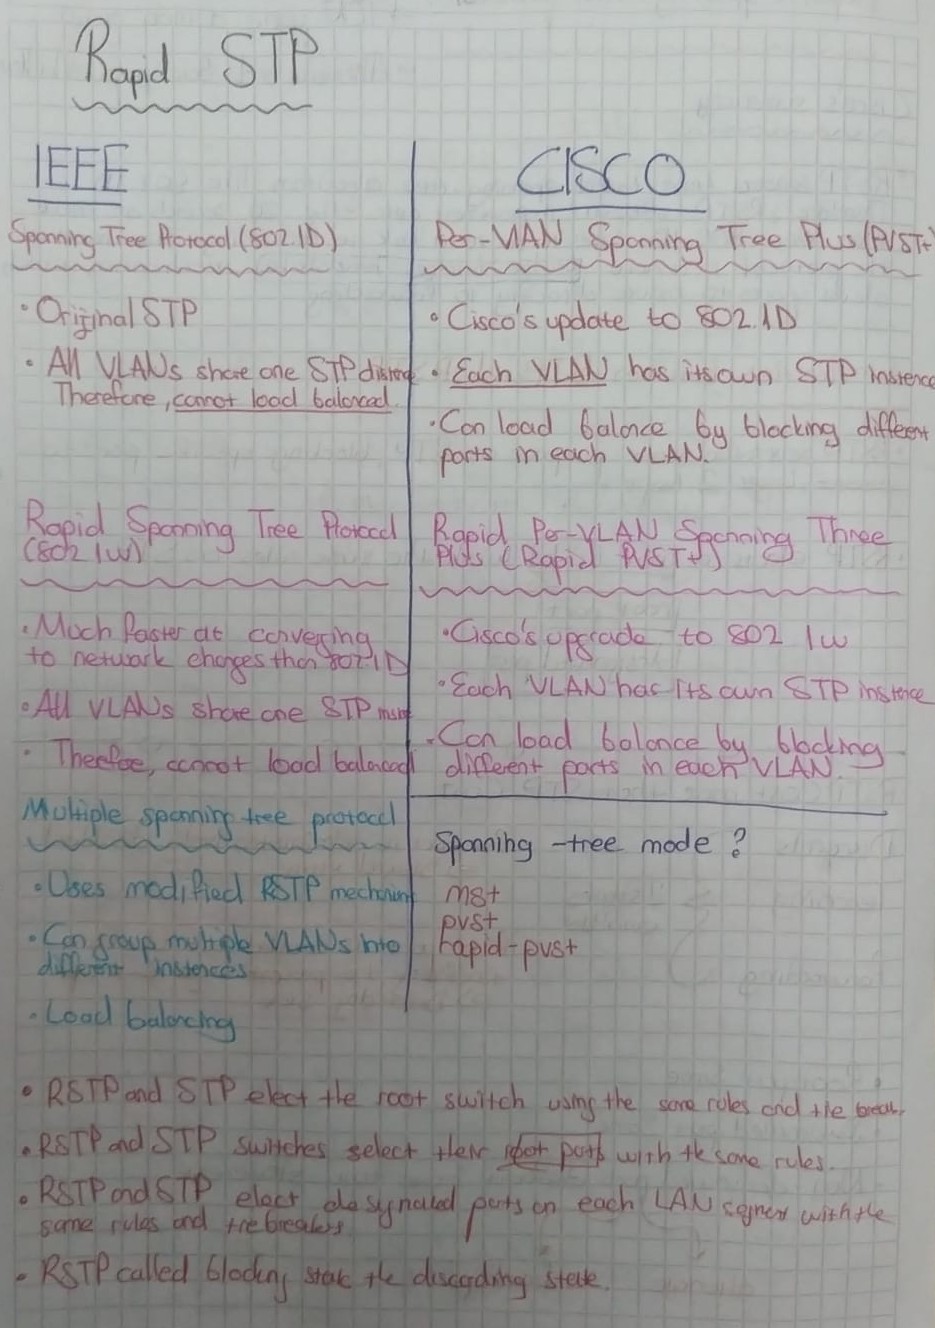 Rapid STP
IEEE
Spanning Tree Protocol (802.1D)
• Original STP
• All VLANs share one STP
Therefore, cannot load balanced.
Rapid Spanning Tree Protocol
(802.1w)
• Much faster at converging
to network changes than 802.1D
• All VLANs share one STP
• Therefoe, cannot load balanced
Multiple spanning tree protocol
• Uses modified RSTP
• Can group multiple VLANs into
different instances
• Load balancing
CISCO
Per-VLAN Spanning Tree Plus (PVST+)
• Cisco's update to 802.1D
• Each VLAN has its own STP instence
• Can load balance by blocking different
ports in each VLAN.
Rapid Per-VLAN Spanning Three
Plus (Rapid PVST+)
• Cisco's upgrade to 802 1w
• Each VLAN has its own STP instence
• Can load balance by blocking
different ports in each VLAN.
Spanning -tree mode ?
mst
pvst
rapid-pvst
• RSTP and STP elect the root switch using the same rules and
• RSTP and STP switches select their root ports with the same rules.
• RSTP and STP elect designated ports on each LAN with the
same rules and tiebreakers
• RSTP called blocking state the discarding state.